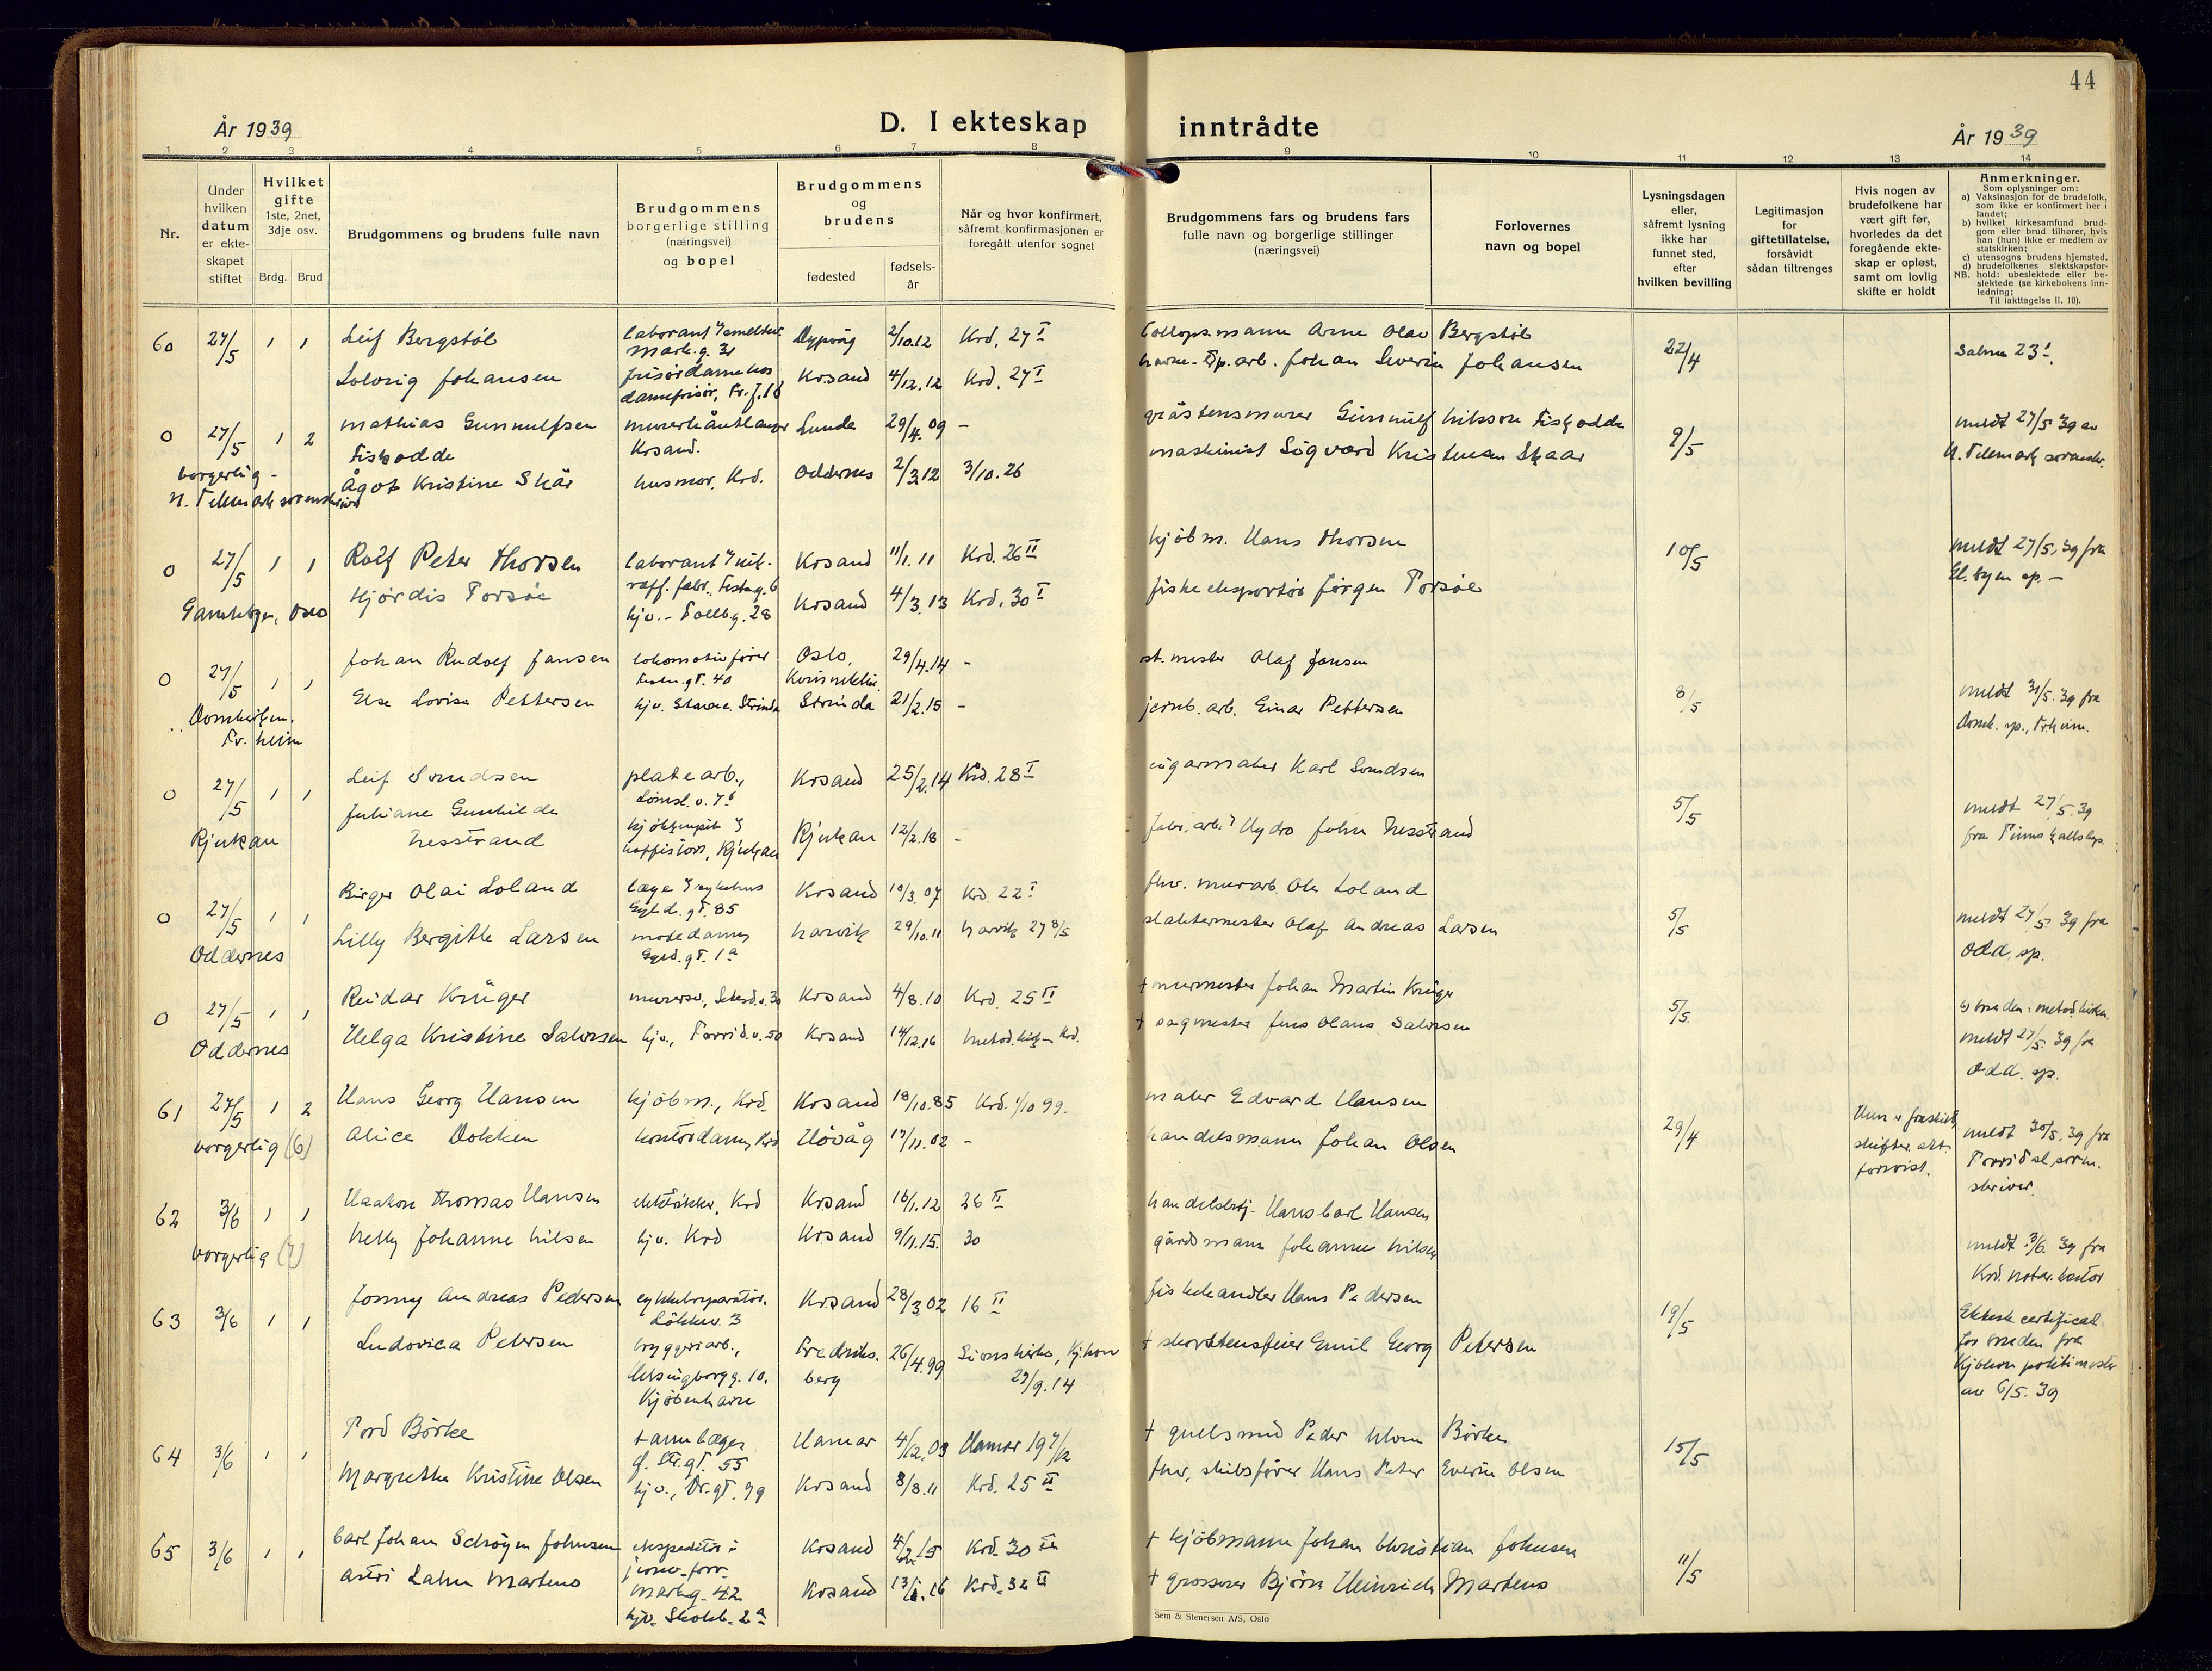 44
År 1939
D. I ekteskap inntrådte
År 1939
1 2 3 4 5 6 7 8 9 10 11 12 13 14
Nr.
Under hvilken datum er ekteskapet stiftet
Hvilket gifte
1ste, 2net, 3dje osv.
Brdg. Brud
Brudgommens og brudens fulle navn
Brudgommens borgerlige stilling (næringsvei) og bopel
Brudgommens og brudens
fødested
fødselsår
Når og hvor konfirmert, såfremt konfirmasjonen er foregått utenfor sognet
Brudgommens fars og brudens fars fulle navn og borgerlige stillinger (næringsvei)
Forlovernes navn og bopel
Lysningsdagen eller, såfremt lysning ikke har funnet sted, efter hvilken bevilling
Legitimasjon for giftetillatelse, forsåvidt sådan tiltrenges
Hvis nogen av brudefolkene har vært gift før, hvorledes da det foregående ekteskap er opløst, samt om lovlig skifte er holdt
Anmerkninger.
Som oplysninger om:
a) Vaksinasjon for de brudefolk, som ikke er konfirmert her i landet;
b) hvilket kirkesamfund brudgom eller brud tilhører, hvis han (hun) ikke er medlem av statskirken;
c) utensogns brudens hjemsted,
d) brudefolkenes slektskapsforhold: ubeslektede eller beslektede (se kirkebokens innledning;
NB. Til iakttagelse II. 10).
60 27/5 1 1 Leif Bergstöl
Mark.g. 31 Dypvåg 2/10.12 Krd. 27 I
Arne Olav Bergstöl
Solveig Johansen frisördame hos damefrisör, Kr.sand 4/12.12 Krd. 27 I
Johan Severin Johansen
22/4
Salme 23!
0 27/5 1 2 Mathias Gunnulfsen Fiskodde
Krsand. Lunde 29/4.09 -
gråstensmurer Gunnulf Nilsson Fiskodde
borgerlig -
N. Telemark sorenskriver
Ågot Kristine Skår husmor, Krd. Oddernes 2/3.12 3/10.26
maskinist Sigvard Kristensen Skaar
9/5
meldt 27/5.39 av
N. Telemark sorenskr.
0 27/5 1 1 Rolf Peter Thorsen
Krsand 11/1.11 Krd. 26 II
kjöbm. Hans Thorsen
Gamlebyen, Oslo
Hjørdis Torsöe hjv. - Tollb.g. 28 Krsand 4/3.13 Krd. 30 I
fiskeeksportör Jörgen Torsöe
10/5
meldt 27/5.39 fra
0 27/5 1 1 Johan Rudolf Jansen lokomotivförer
Oslo, 29/4.14 -
st.mester Olaf Jansen
Domkirken. Tr.heim
Else Lovise Pettersen hjv. Strinda 21/2.15 -
jernb.arb. Einar Pettersen
8/5
meldt 31/5.39 fra
Domk. sp., Trheim.
0 27/5 1 1 Leif Svendsen platearb., Krsand 25/2.14 Krd. 28 I
Karl Svendsen
Rjukan
Juliane Gunhilde Nesstrand Rjukan 12/2.18 -
fabr.arb. Hydro John Nesstrand
5/5
meldt 27/5.39
fra
0 27/5 1 1 Birger Olai Loland
Gyld.gt. 85 Krsand 10/3.07 Krd. 22 I
fhv. murarb. Ole Loland
Oddernes
Lilly Bergitte Larsen motedame, Gyld.gt. 1a Narvik 29/10.11 Narvik 27 8/5
slaktermester Olaf Andreas Larsen
5/5
meldt 27/5.39 fra
Odd. sp.
0 27/5 1 1 Reidar Krüger
Krsand 4/8.10 Krd. 25 II
+ murmester Johan Martin Krüger
Oddernes
Helga Kristine Salvesen hjv., Torrid.v. 50 Krsand 14/12.16 metod.kirk. Krd.
+ sagmester Jens Olaus Salvesen
5/5.
b) bruden: metodkirken
meldt 27/5.39 fra
Odd. sp.
61 27/5 1 2 Hans Georg Hansen kjöbm., Krd. Krsand 18/10.85 Krd. 1/10 99.
maler Edvard Hansen
borgerlig (6)
Alice Dokken kontordame, Krd Hövåg 17/11.02 -
handelsmann Johan Olsen
29/4
Hun er fraskilt, skifteatt. forevist.
meldt 30/5.39 fra
Torridal soren-
skriver.
62 3/6 1 1 Haakon Thomas Hansen Krd Krsand 16/1.12 26 II
Hans Carl Hansen
borgerlig (7)
Nelly Johanne Nilsen hjv. Krd Krsand 9/11.15. 30
gårdsmann Johannes Nilsen
meldt 3/6.39 fra
Krd. notar.kontor
63 3/6 1 1 Jonny Andreas Pedersen cykkelreparatör. Lökkev. 3 Krsand 28/3.02 16 II
fiskehandler Hans Pedersen
Ludovica Petersen bryggeriarb., Helsingborgg. 10. Kjöbenhavn Fredriksberg 26/4.99 Sions kirke, Kj.havn 29/9.14
+ skorstensfeier Emil Georg Petersen
19/5
Ektesk. certificat
for bruden fra
Kjöbenh politimester
av 6/5.39
64 3/6 1 1 Tord Börke tannlæge, Str.gt. 55 Hamar 4/12.03 Hamar 19
+ gullsmed Peder Börke
Margrethe Kristine Olsen hjv., Dr.gt. 99 Krsand 8/8.11 Krd. 25 II
fhv. skibsförer Hans Peter Everin Olsen
15/5
65 3/6 1 1 Carl Johan Schröyen Johnsen ekspeditör i jernv.forr. Markg. 42 Krsand 4/2.15 Krd. 30 II
+ kjöbmann Johan Christian Johnsen
Astri Lahn Martens hjv. Skolb. 2a Krsand 13/1.16 Krd. 32 II
+ grosserer Björn Heinrich Martens
11/5
Sem & Stenersen A/S, Oslo